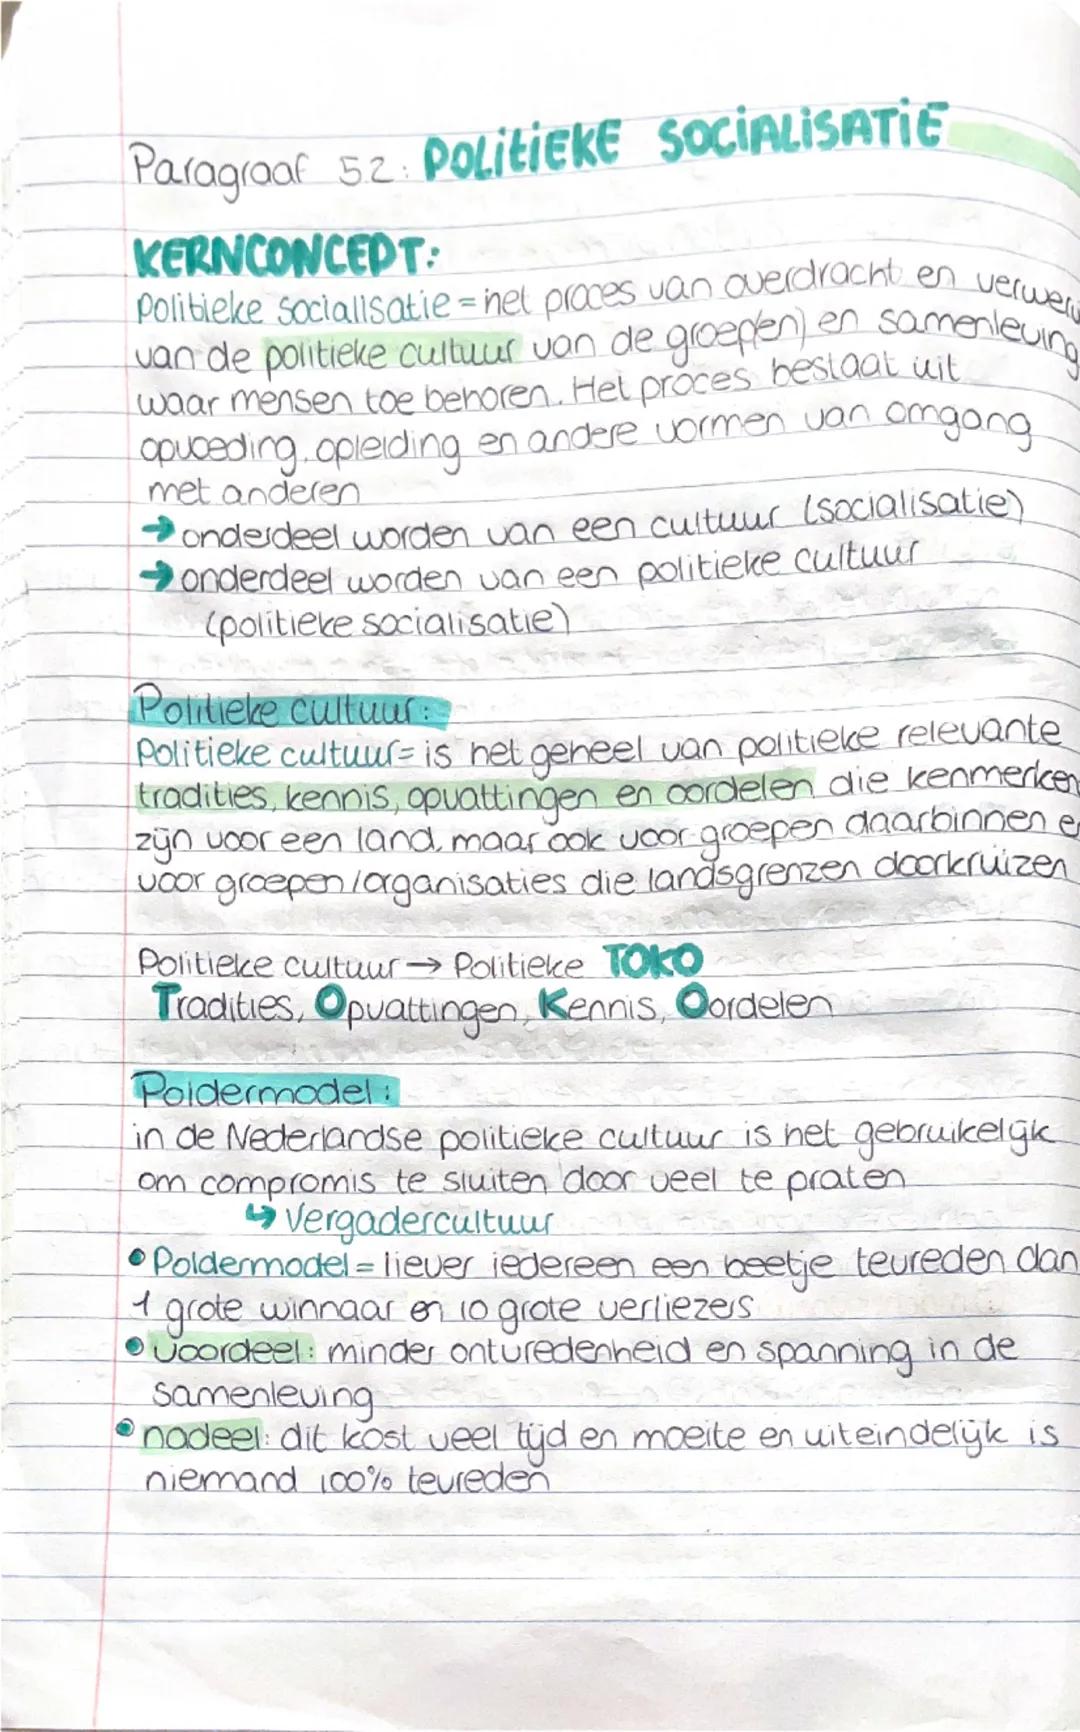 Paragraaf 5.2: POLITIEKE SOCIALISATIE
KERNCONCEPT:
Politieke socialisatie = het proces van overdracht en verwerv
van de politieke cultuur van de groep(en) en samenleving
waar mensen toe behoren. Het proces bestaat uit
opvoeding, opleiding en andere vormen van omgang
met anderen
→ onderdeel worden van een cultuur (socialisatie)
→ onderdeel worden van een politieke cultuur
(politieke socialisatie)
Politieke cultuur:
Politieke cultuur = is het geheel van politieke relevante
tradities, kennis, opvattingen en oordelen die kenmerken
zijn voor een land, maar ook voor groepen daarbinnen en
voor groepen/organisaties die landsgrenzen doorkruizen
Politieke cultuur → Politieke TOKO
Tradities, Opvattingen, Kennis, Oordelen
Poldermodel:
in de Nederlandse politieke cultuur is het gebruikelijk
om compromis te sluiten door veel te praten
↳ Vergadercultuur
• Poldermodel = liever iedereen een beetje tevreden dan
1 grote winnaar en 10 grote verliezers
• voordeel: minder ontvredenheid en spanning in de
samenleving
• nadeel: dit kost veel tijd en moeite en uiteindelijk is
niemand 100% tevreden